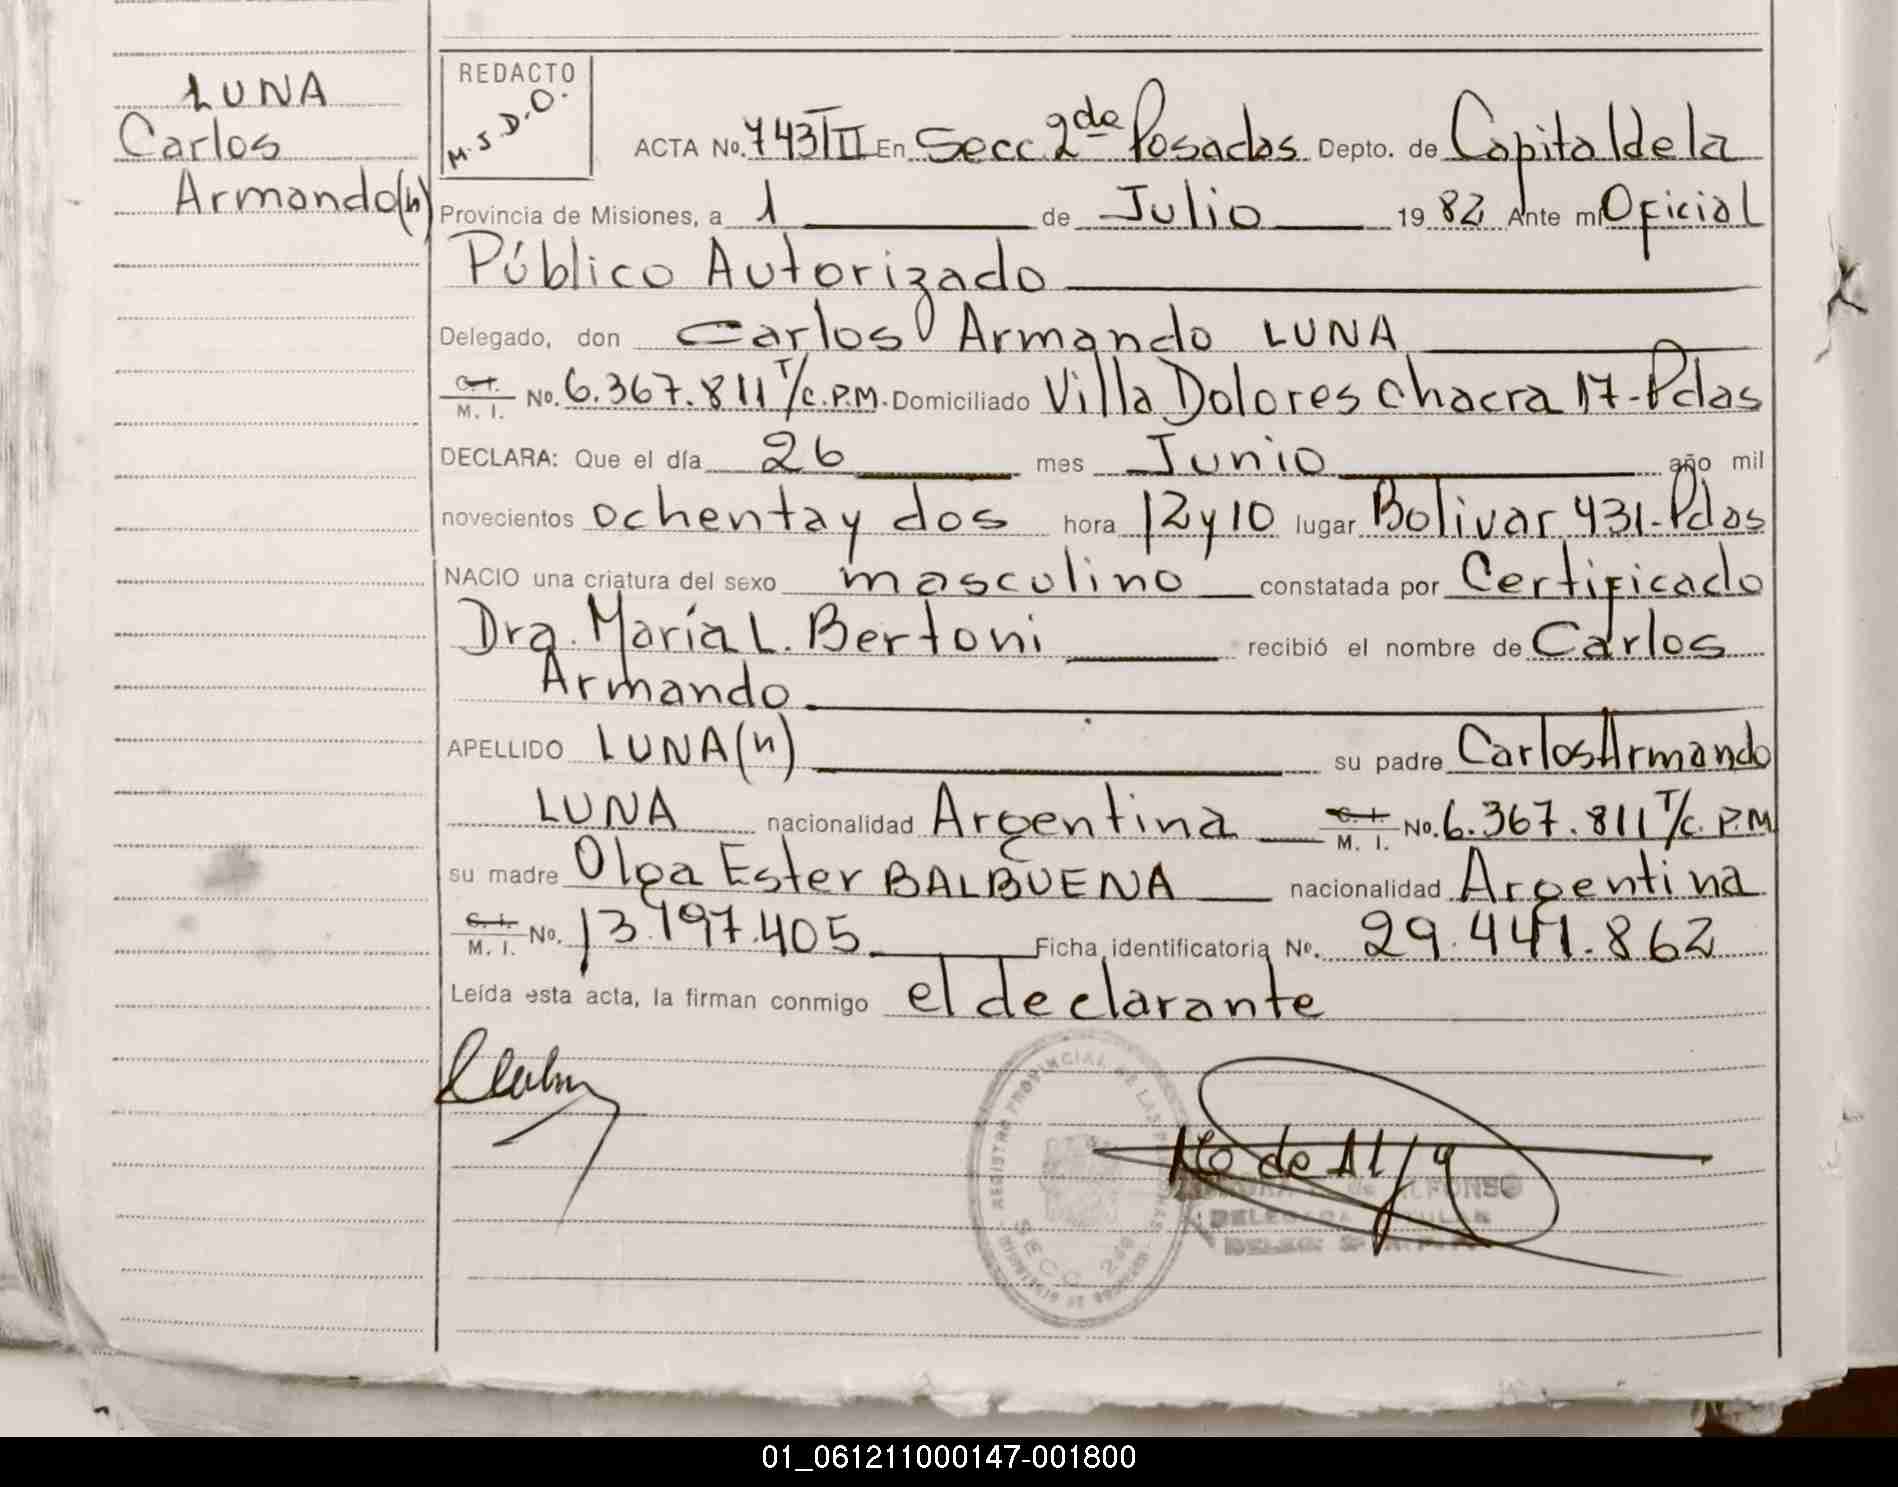 LUNA
Carlos
Armando(h)
REDACTO
M.S.D.O.
ACTA No. 743/II En Secc. 2da Posadas Depto. de Capital de la
Provincia de Misiones, a 1 de Julio 1982 Ante mí Oficial
Público Autorizado
Delegado, don Carlos Armando LUNA
C.I. M. I. No. 6.367.811 T/C.P.M. Domiciliado Villa Dolores chacra 17-Pdas
DECLARA: Que el día 26 mes Junio año mil
novecientos ochenta y dos hora 12 y 10 lugar Bolivar 431-Pdas
NACIO una criatura del sexo masculino constatada por Certificado
Dra. María L. Bertoni recibió el nombre de Carlos
Armando
APELLIDO LUNA(h) su padre Carlos Armando
LUNA nacionalidad Argentina C.I. M. I. No. 6.367.811 T/C.P.M
su madre Olga Ester BALBUENA nacionalidad Argentina
C.I. M. I. No. 13.197.405 Ficha identificatoria No. 29.441.862
Leída esta acta, la firman conmigo el declarante
REGISTRO PROVINCIAL DE LAS PERSONAS
SECC. 2da
de ALFONSO
DELEGADA TITULAR
01_061211000147-001800